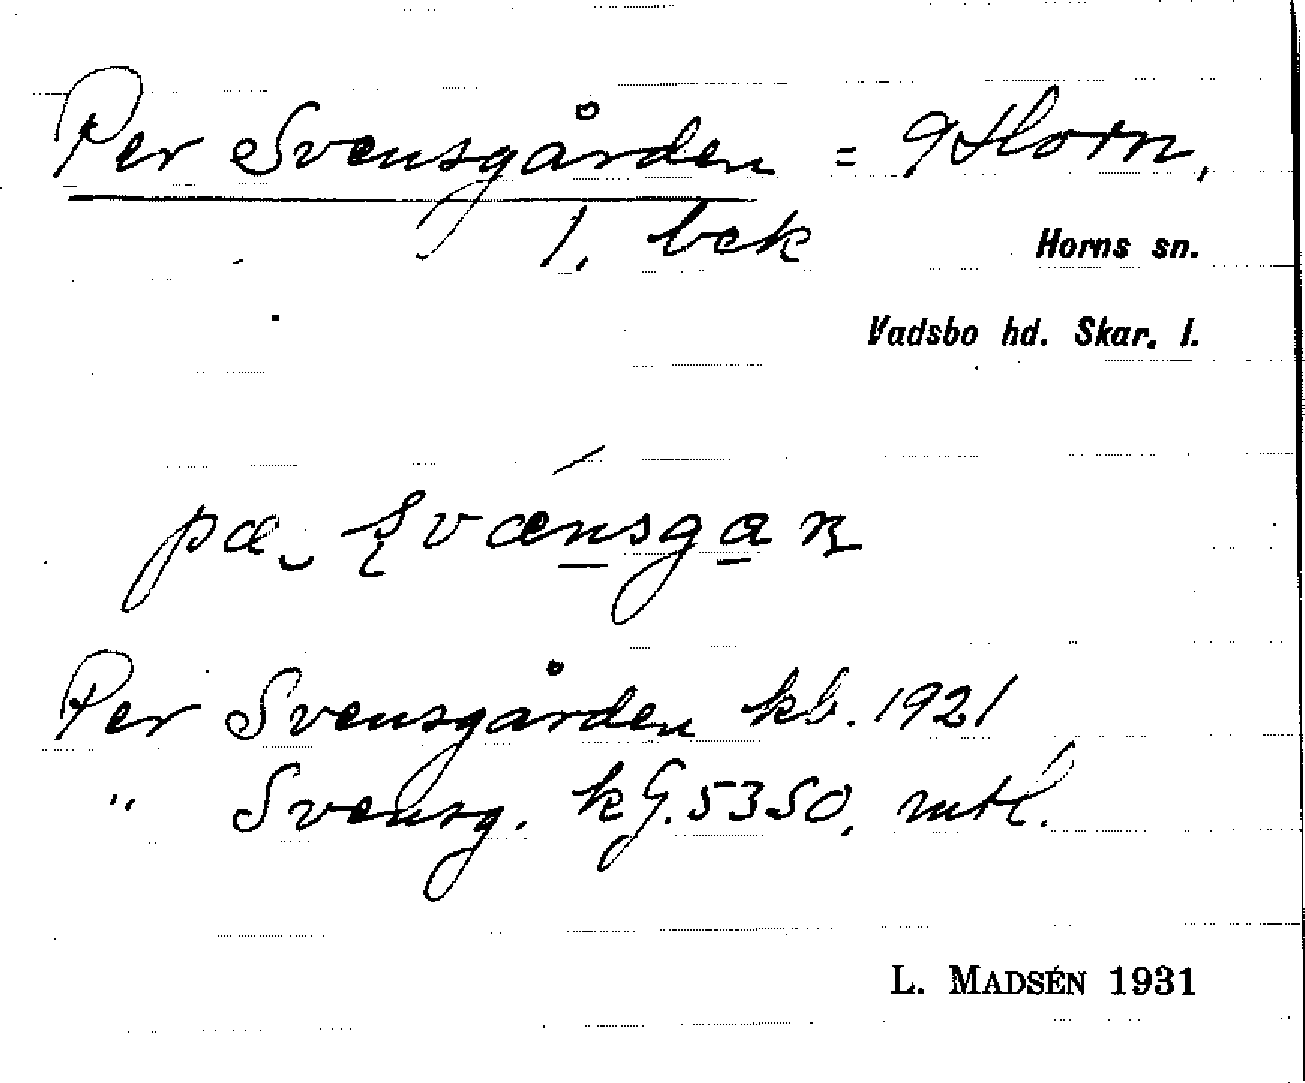 Per Svensgården = 9 Horn,
1. bek
Horns sn.
Vadsbo hd. Skar. l.
Per Svensgården kb. 1921
" Svensg. kG. 5350, mtl.
L. MADSÉN 1931